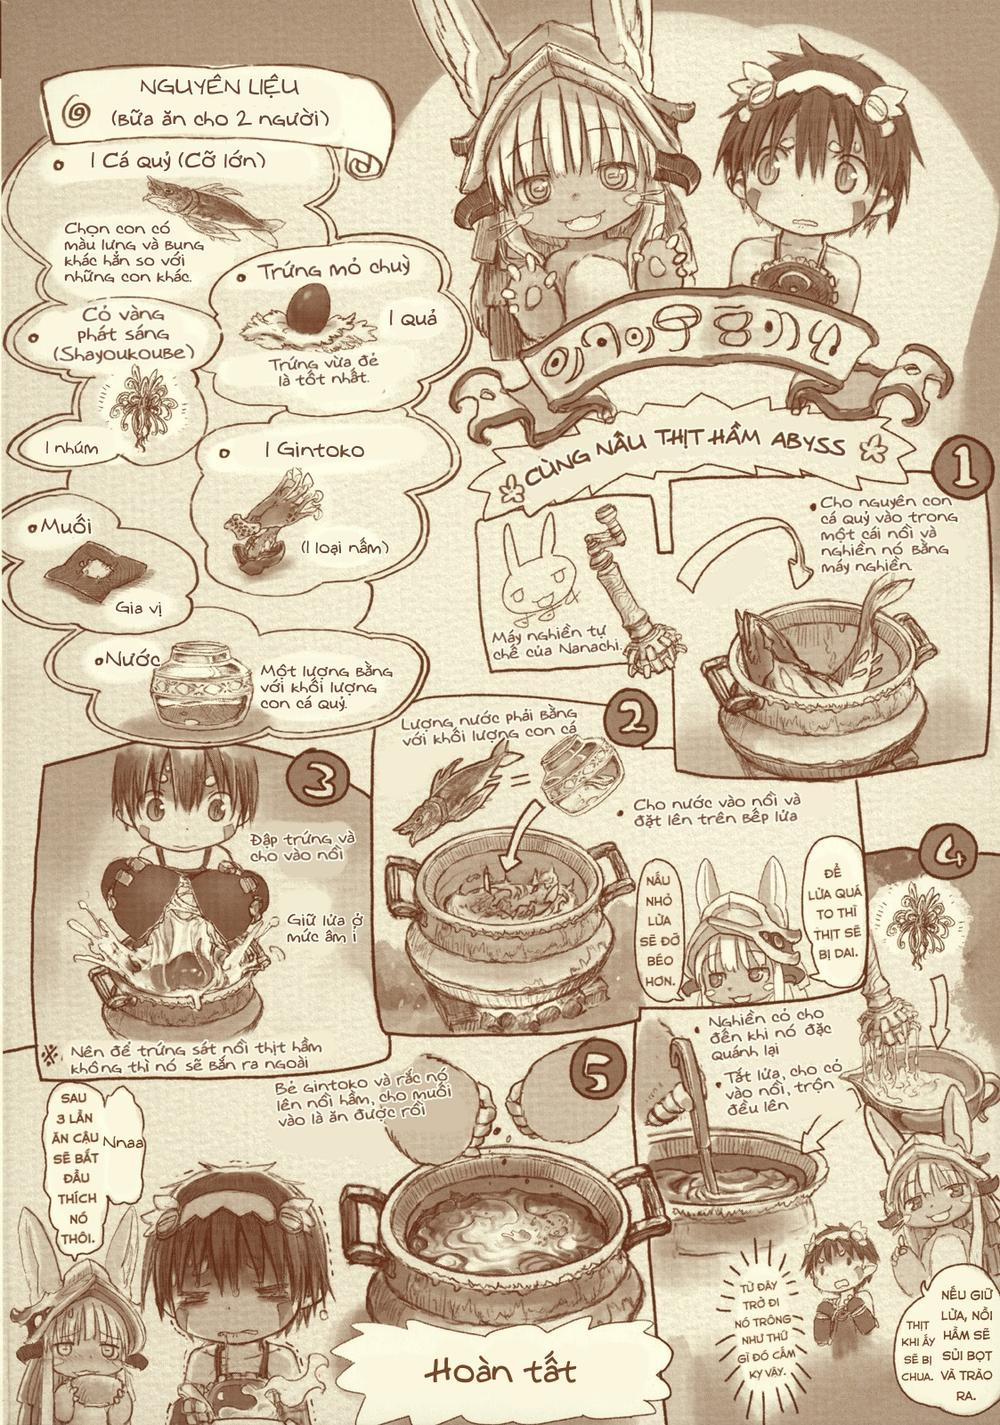 NGUYÊN LIỆU
(BỮA ĂN CHO 2 NGƯỜI)
1 CÁ QUỶ (CỠ LỚN)
Chọn con có
màu lưng và bụng
khác hẳn so với
những con khác.
Trứng mỏ chuỳ
1 Quả
Trứng vừa đẻ
là tốt nhất.
Cỏ vàng
phát sáng
(Shayoukoube)
1 nhúm
1 Gintoko
(1 loại nấm)
Muối
Gia vị
Nước
Một lượng bằng
với khối lượng
con cá quỷ.
CÙNG NẤU THỊT HẦM ABYSS
1
Cho nguyên con
cá quỷ vào trong
một cái nồi và
nghiền nó bằng
máy nghiền.
Máy nghiền tự
chế của Nanachi.
2
Lượng nước phải bằng
với khối lượng con cá
=
Cho nước vào nồi và
đặt lên trên bếp lửa
NẤU
NHỎ
LỬA
SẼ ĐỠ
BÉO
HƠN.
ĐỂ
LỬA QUÁ
TO THÌ
THỊT SẼ
BỊ DAI.
3
Đập trứng và
cho vào nồi
Giữ lửa ở
mức âm ỉ
※ Nên để trứng sát nồi thịt hầm
không thì nó sẽ bắn ra ngoài
4
Nghiền cỏ cho
đến khi nó đặc
quánh lại
Tắt lửa, cho cỏ
vào nồi, trộn
đều lên
NẾU GIỮ
LỬA, NỒI
HẦM SẼ
SỦI BỌT
VÀ TRÀO
RA.
THỊT
KHI ẤY
SẼ BỊ
CHUA.
TỪ ĐÂY
TRỞ ĐI
NÓ TRÔNG
NHƯ THỨ
GÌ ĐÓ CẤM
KỴ VẬY.
5
Bẻ Gintoko và rắc nó
lên nồi hầm, cho muối
vào là ăn được rồi
SAU
3 LẦN
ĂN CẬU
SẼ BẮT
ĐẦU
THÍCH
NÓ
THÔI.
Nnaa
Hoàn tất